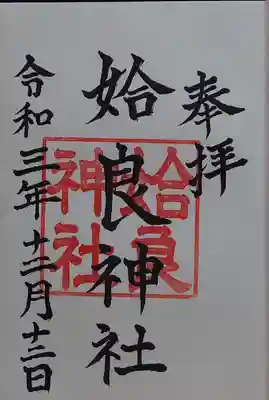 奉拝
姶良神社
姶良神社
令和三年十二月十二日